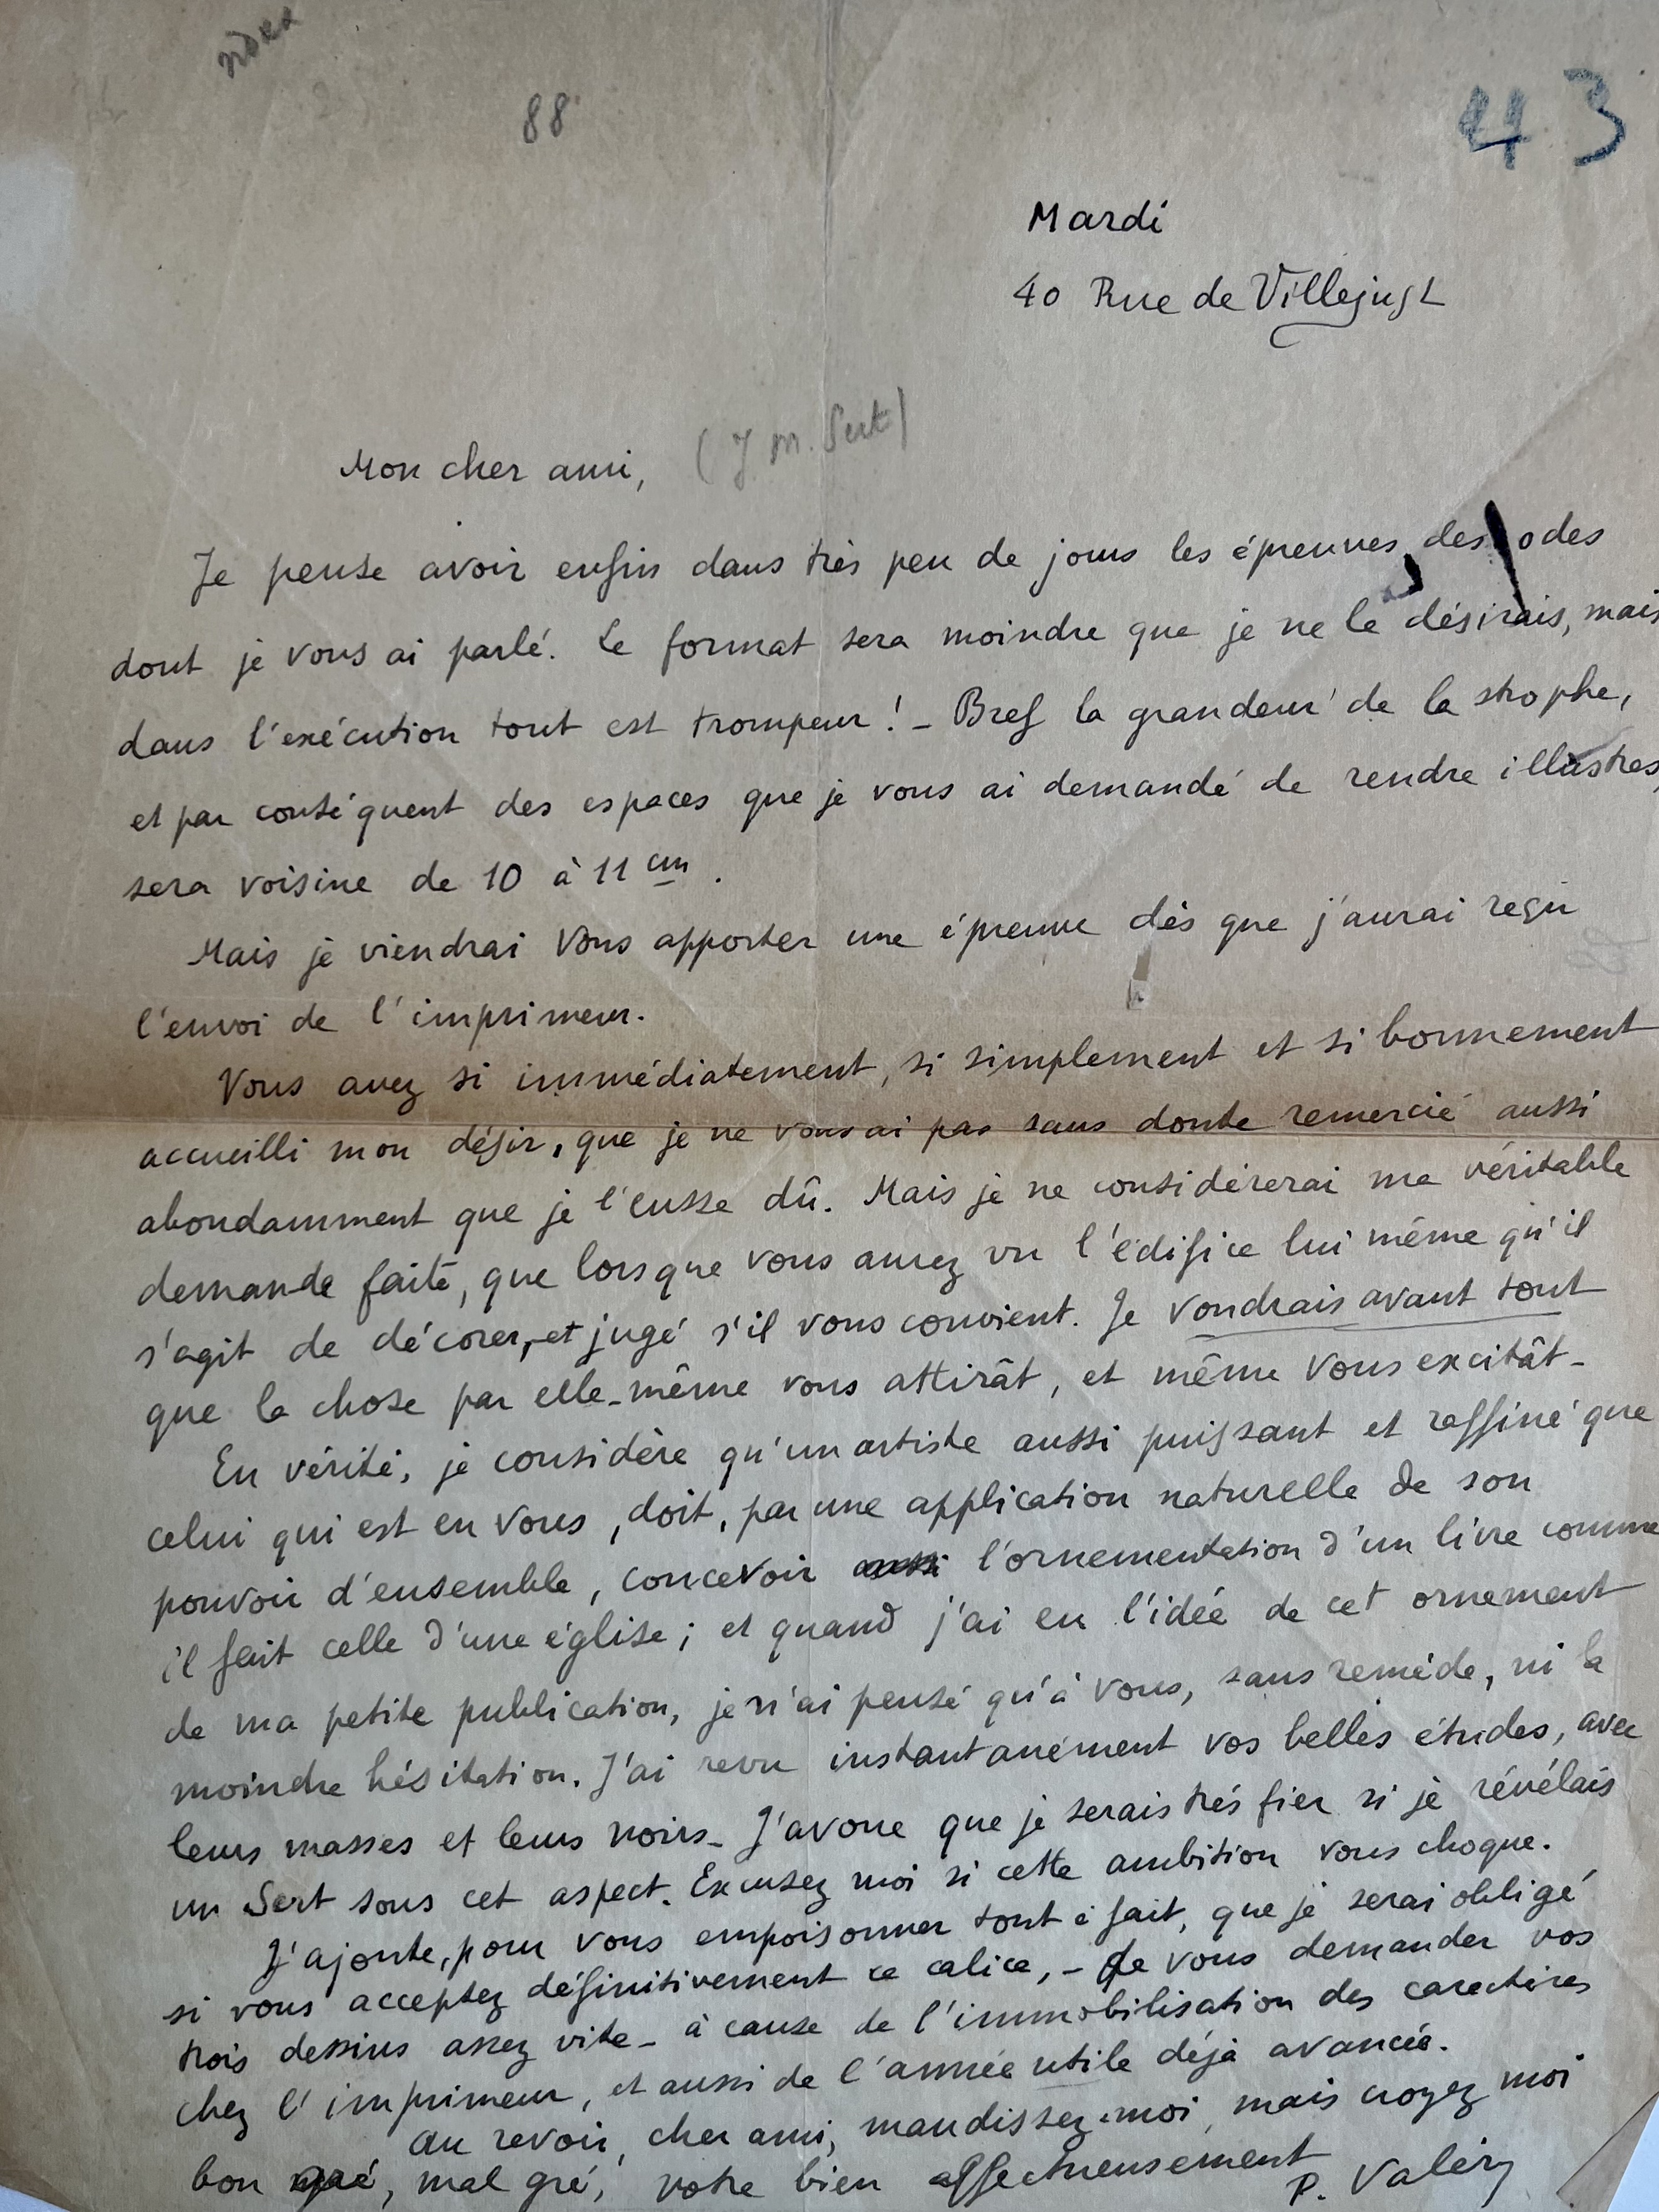 88
43
Mardi
40 Rue de Villejust
Mon cher ami, (J M. Sert)
Je pense avoir enfin dans très peu de jours les épreuves des odes
dont je vous ai parlé. Le format sera moindre que je ne le désirais, mais
dans l'exécution tout est trompeur! – Bref la grandeur de la strophe,
et par conséquent des espaces que je vous ai demandé de rendre illustres,
sera voisine de 10 à 11 cm.
Mais je viendrai vous apporter une épreuve dès que j'aurai reçu
l'envoi de l'imprimeur.
Vous avez si immédiatement, si simplement et si bonnement
accueilli mon désir, que je ne vous ai pas sans doute remercié aussi
abondamment que je l'eusse dû. Mais je ne considérerai ma véritable
demande faite, que lorsque vous aurez vu l'édifice lui même qu'il
s'agit de décorer, et jugé s'il vous convient. Je voudrais avant tout
que la chose par elle-même vous attirât, et même vous excitât –
En vérité, je considère qu'un artiste aussi puissant et raffiné que
celui qui est en vous, doit, par une application naturelle de son
pouvoir d'ensemble, concevoir aussi l'ornementation d'un livre comme
il fait celle d'une église; et quand j'ai eu l'idée de cet ornement
de ma petite publication, je n'ai pensé qu'à vous, sans remède, ni la
moindre hésitation. J'ai revu instantanément vos belles études, avec
leurs masses et leurs noirs – J'avoue que je serais très fier si je révélais
un Sert sous cet aspect. Excusez moi si cette ambition vous choque.
J'ajoute, pour vous empoisonner tout à fait, que je serai obligé
si vous acceptez définitivement ce calice, – de vous demander vos
trois dessins assez vite – à cause de l'immobilisation des caractères
chez l'imprimeur, et aussi de l'année utile déjà avancée.
Au revoir, cher ami, maudissez-moi, mais croyez moi
bon gré, mal gré, votre bien affectueusement
P. Valéry